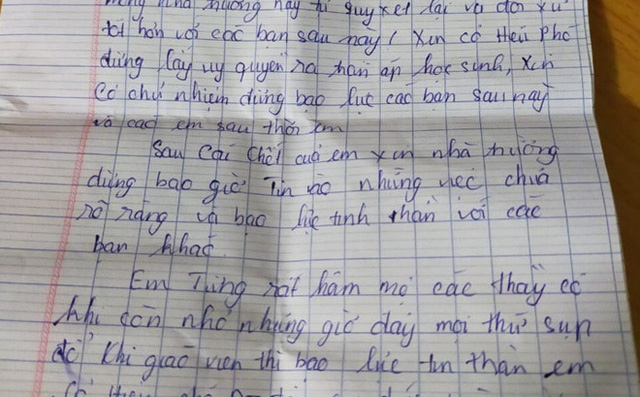 nhà trường này quyết lại và đối xử
tốt hơn với các bạn sau này! Xin cô Hiệu Phó
đừng lấy uy quyền ra trấn áp học sinh, xin
Cô chủ nhiệm đừng bạo lực các bạn sau này
và các em sau thời em
Sau cái chết của em xin nhà trường
đừng bao giờ Tin vào những việc chưa
rõ ràng và bạo lực tinh thần với các
bạn khác
Em Từng rất hâm mộ các thầy cô
khi còn nhỏ nhưng giờ đây mọi thứ sụp
đổ Khi giáo viên thì bạo lực tin thần em